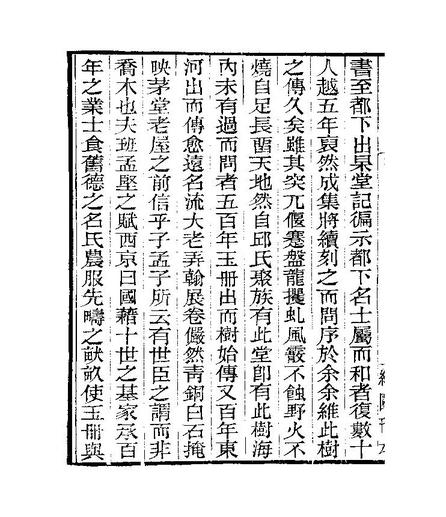 書至都下出杲堂記徧示都下名士屬而和者復數十
人越五年裒然成集將續刻之而問序於余余維此樹
之傳久矣雖其突兀偃蹇盤龍攫虬風霰不蝕野火不
燒自足長留天地然自邱氏聚族有此堂卽有此樹海
內未有過而問者五百年玉冊出而樹始傳又百年東
河出而傳愈遠名流大老弄翰展卷儼然靑銅白石掩
映茅堂老屋之前信乎子孟子所云有世臣之謂而非
喬木也夫班孟堅之賦西京曰國藉十世之基家承百
年之業士食舊德之名氏農服先疇之畎畝使玉冊與